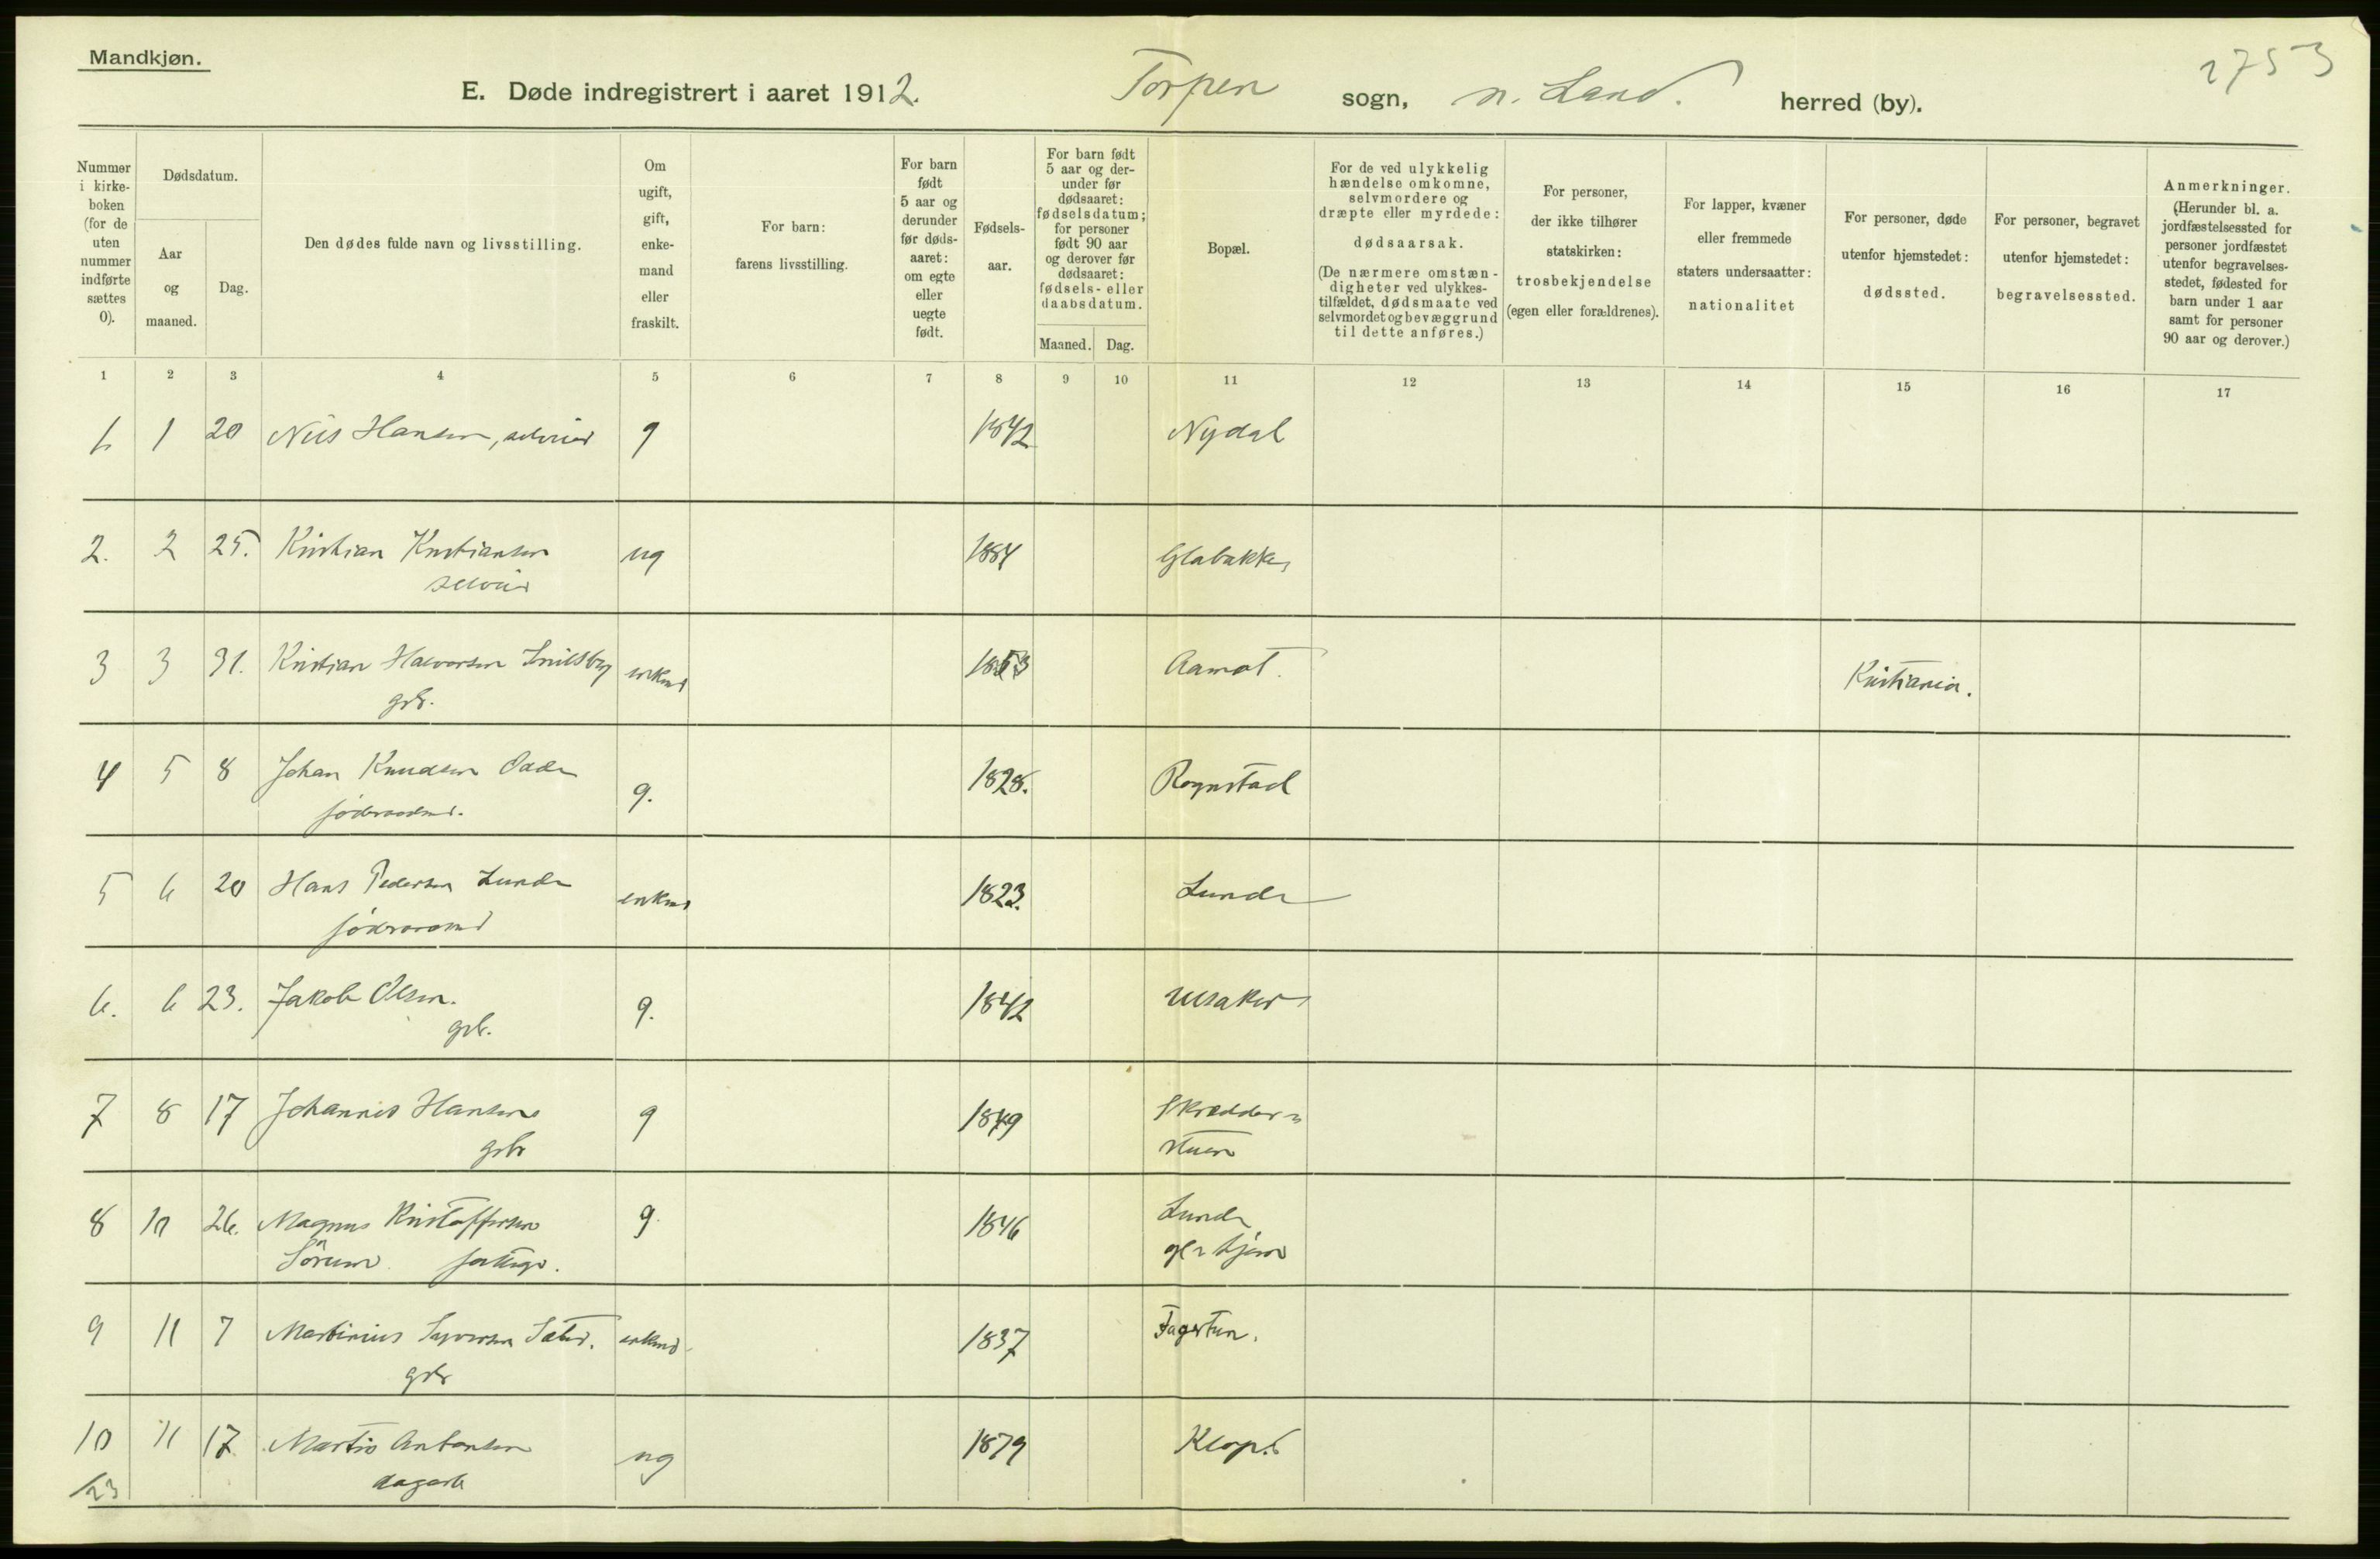 Mandkjøn.
2753
E. Døde indregistrert i aaret 1912.
Torpen sogn, n. Land. herred (by).
Nummer i kirkeboken (for de uten nummer indførte sættes 0).
Dødsdatum.
Aar og maaned.
Dag.
Den dødes fulde navn og livsstilling.
Om ugift, gift, enkemand eller fraskilt.
For barn: farens livsstilling.
For barn født 5 aar og derunder før dødsaaret: om egte eller uegte født.
Fødselsaar.
For barn født 5 aar og derunder før dødsaaret: fødselsdatum; for personer født 90 aar og derover før dødsaaret: fødsels- eller daabsdatum.
Maaned. Dag.
Bopæl.
For de ved ulykkelig hændelse omkomne, selvmordere og dræpte eller myrdede: dødsaarsak.
(De nærmere omstændigheter ved ulykkestilfældet, dødsmaate ved selvmordet og bevæggrund til dette anføres.)
For personer, der ikke tilhører statskirken: trosbekjendelse (egen eller forældrenes).
For lapper, kvæner eller fremmede staters undersaatter: nationalitet
For personer, døde utenfor hjemstedet: dødssted.
For personer, begravet utenfor hjemstedet: begravelsessted.
Anmerkninger.
(Herunder bl. a. jordfæstelsessted for personer jordfæstet utenfor begravelsesstedet, fødested for barn under 1 aar samt for personer 90 aar og derover.)
1 2 3 4 5 6 7 8 9 10 11 12 13 14 15 16 17
1. 1 20 Nils Hansen, selveier g 1842 Nydal
2. 2 25. Kristian Kristiansen ug 1884 Glabakke
selveier
3 3 31. Kristian Halvorsen enkmd 1853 Aamot. Kristiania.
gbr.
4 5 8 Johan Knudsen Odde g. 1828. Rognstad
föderaadmd.
5 6 20 Hans Pedersen Lunde enkmd 1823. Lunde
föderaadmd
6. 6 23. Jakob Olsen. g. 1842 Ulsaker
gbr.
7 8 17 Johannes Hansen g 1849 Skrædder=
gbr stuen
8 10 26. Magnus Kristoffersen g. 1846 Lunde
Sörum
9 11 7 Martinius Syversen enkmd. 1837 Fagertun.
gbr
10 11 17 Martin Antonsen ug 1879
dagarb
/23